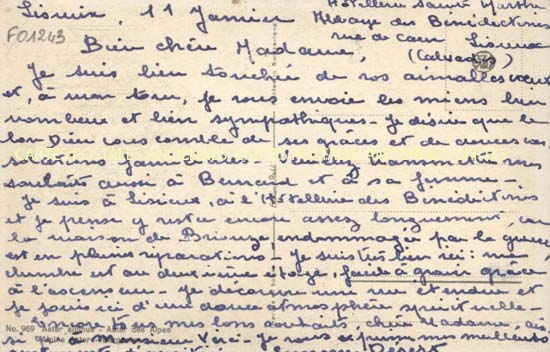 Lisieux, 11 Janvier
Hôtellerie Sainte Marthe
Abbaye des Bénédictines
rue de Caen Lisieux
(Calvados)
FO1243
Bien chère Madame,
Je suis bien touchée de vos aimables voeux
et, à mon tour, je vous envoie les miens bien
nombreux et bien sympathiques - Je désire que le
bon Dieu vous comble de ses grâces et de douces con-
solations familiales - Veuillez transmettre mes
souhaits aussi à Bernard et à sa femme -
Je suis à Lisieux, à l'Hôtellerie des Bénédictines
et je pense y rester encore assez longuement, car
la maison de Briouze, endommagée par la guerre
est en pleines réparations - Je suis très bien ici : ma
chambre est au deuxième étage, facile à gravir grâce
à l'ascenseur - Je découvre une vue étendue et
je jouis d'une douce atmosphère spirituelle -
No. 969 Aster alpinus - Aster des Alpes
souhaits, chère Madame, ainsi
si Monsieur Je vous meilleurs